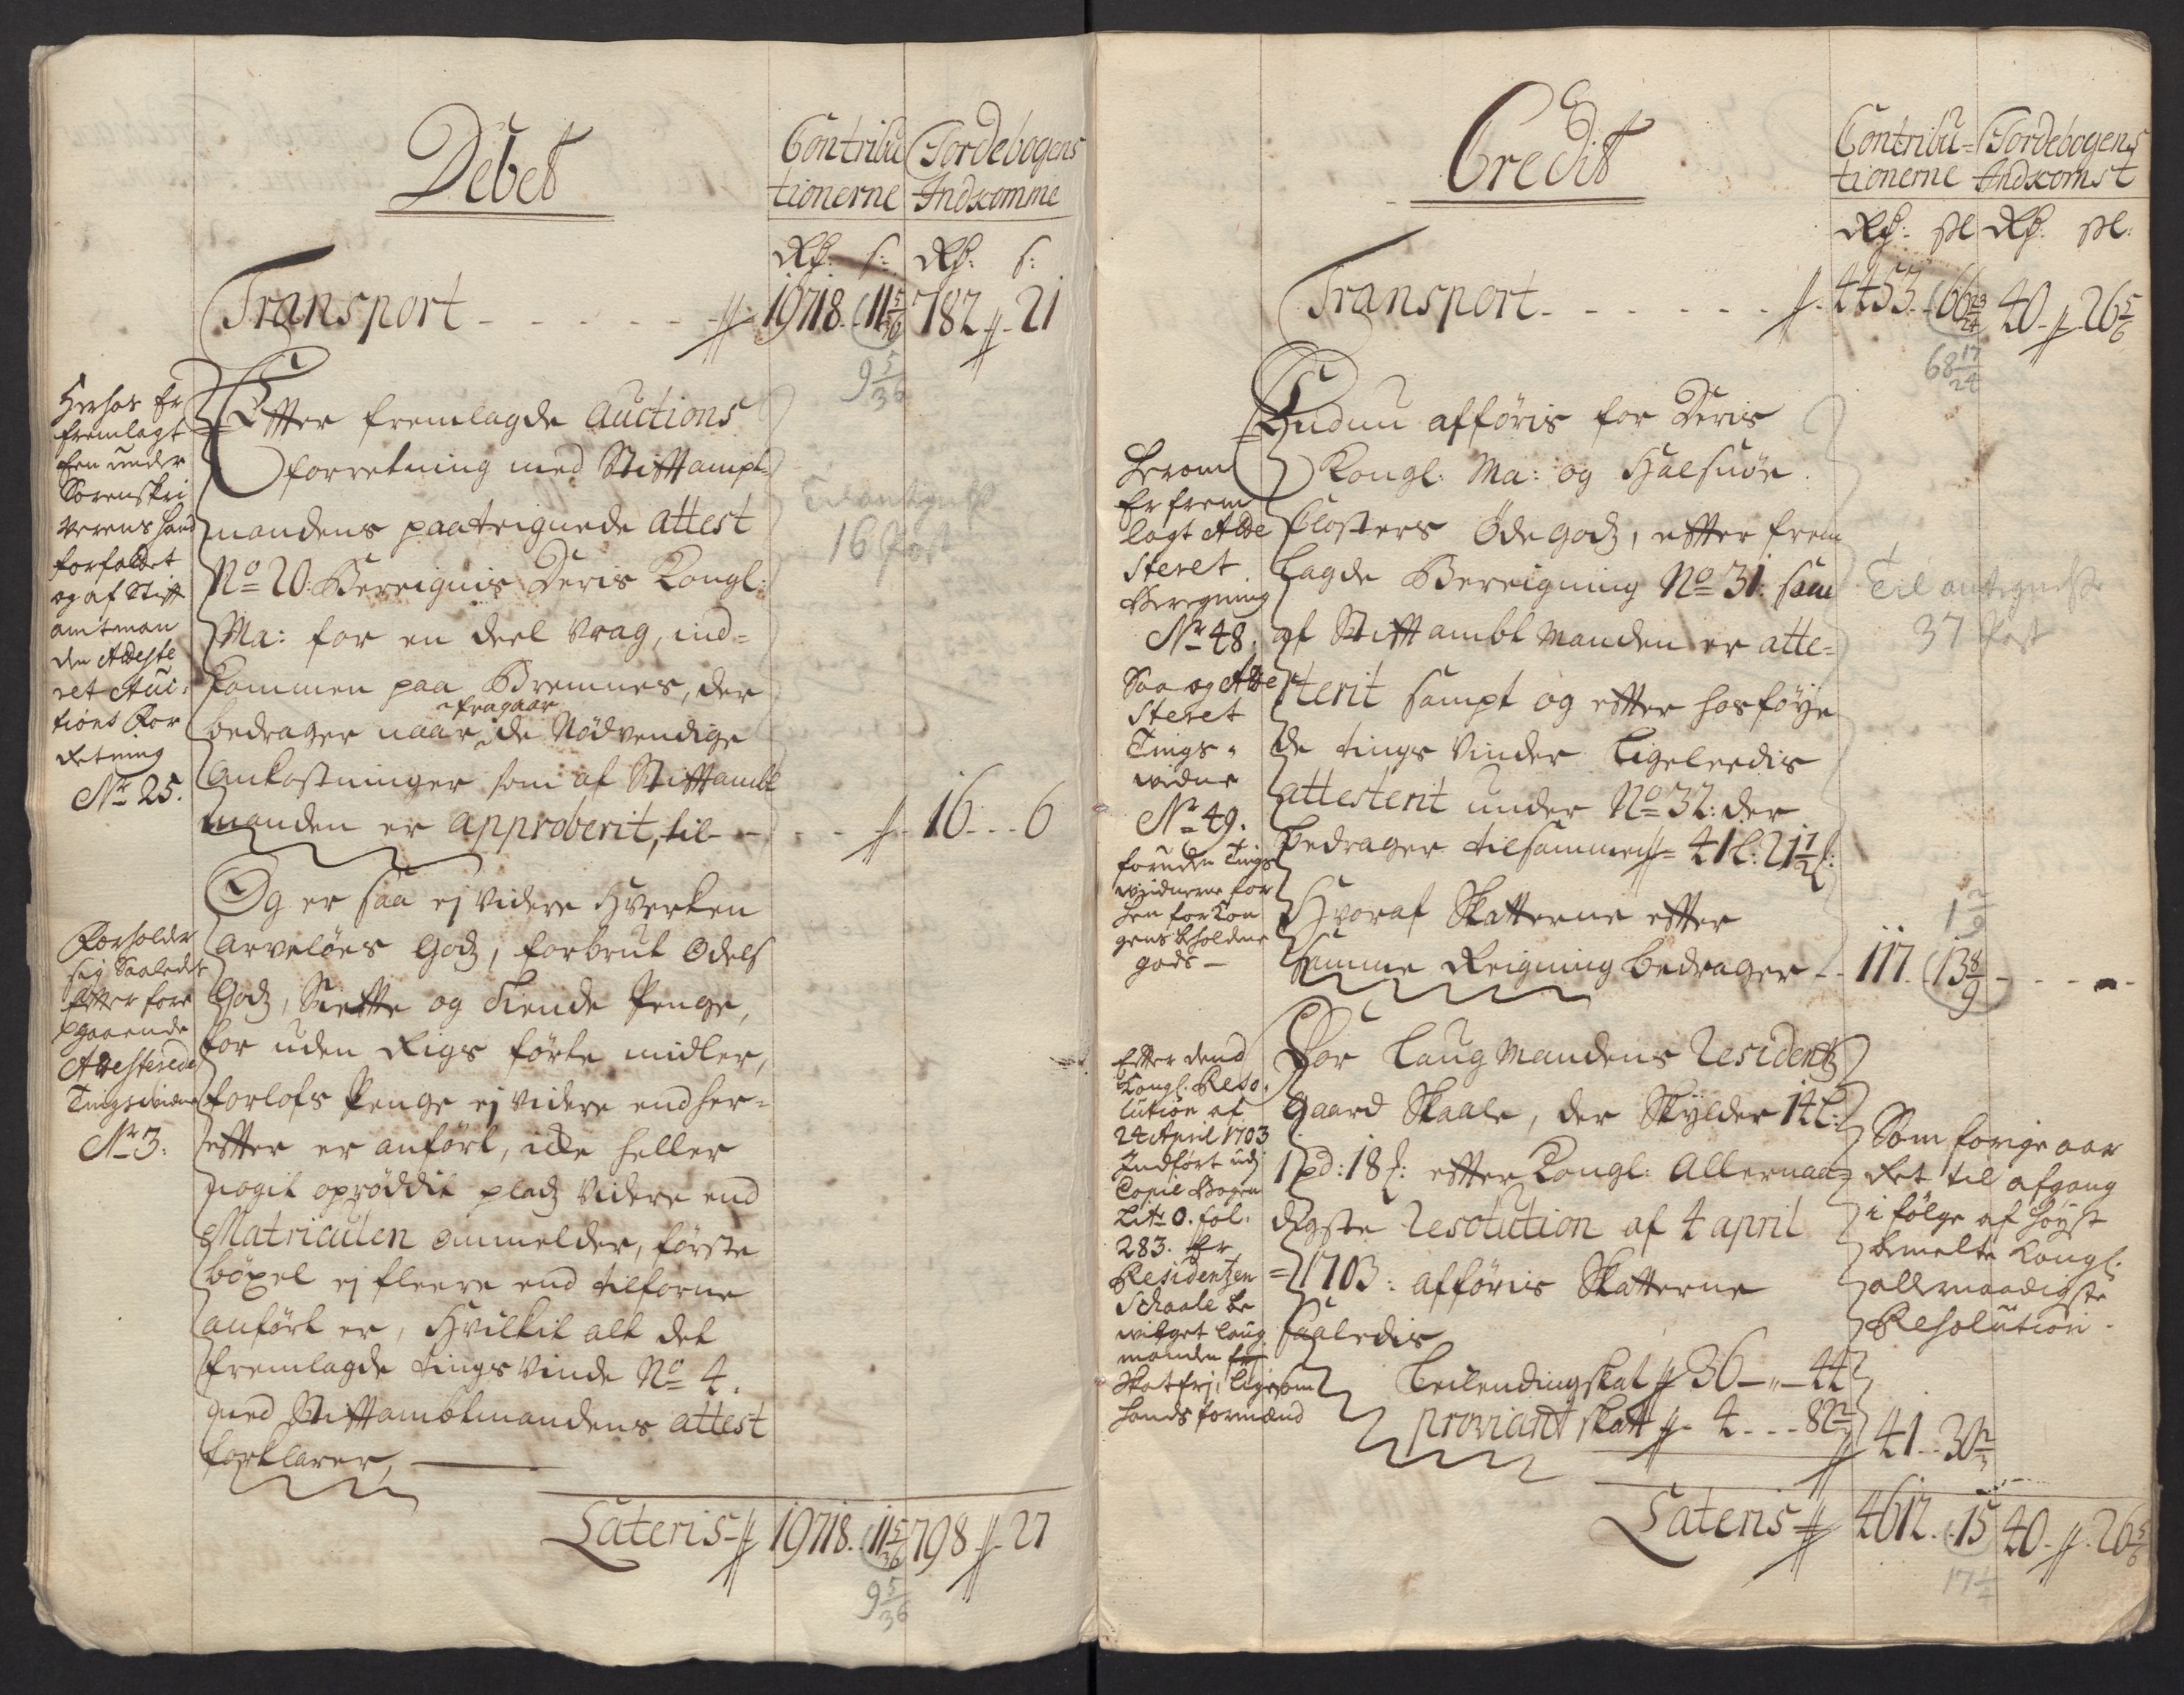 Debet
Contribu
tionerne
Jordebogens
Indkomme
Rd: s: Rd: s:
Transport - - - - - 19718. 11 5/36 782 - 21
9 5/36
Herhos Er
fremlagt
Een under
Sorenskri
verens haand
forfattet
og af Stift
amtman
den Atteste
ret Auc:
tions For
retning
Nr 25.
Efter fremlagde Auctions
forretning med Stiftampt-
mandens paateignede attest
No 20: Bereignis Deris Kongl:
Ma: for en deel vrag, ind-
kommen paa Bremnes, der
fragaar
bedrager naar de Nødvendige
Omkostninger som af Stiftambt
manden er approberit, til - - - - 16 - - 6
Til antegnelse
16 Post
Forholder
sig Saaledes
Efter fore
gaaende
Attesterede
Tingsvidne
Nr 3.
Og er saa ej videre Hverken
arveløes Godz, forbrut Odels
Godz, Siette og Tiende Penge,
for uden Rigs førte midler,
forlofs Penge ej videre end her-
efter er anført, icke heller
nogit oprøddit pladz videre end
Matriculen ommelder, første
bøxel ej fleere end tilforne
anført er, Hvilkit alt det
fremlagde tings vinde No 4.
med Stiftambtmandens attest
forklarer,
Lateris - 19718. 11 5/36 798 - 27
9 5/36
Credit
Contribu-
tionerne
Jordebogens
Indkomst
Rd: sl Rd: sl:
Transport - - - - - 4453. 66 23/24 40 - 26 5/6
68 17/24
Herom
Er frem
lagt Atte
steret
Beregning
Nr 48.
Saa og Atte
steret
Tings-
vidne
Nr 49.
foruden Tings
vidnerne for
hen for Kon
gens beholdne
gods
Endnu afføris for Deris
Kongl: Ma: og Halsnøe
Closters Øde Godz, efter frem
lagde Bereigning No 31: som
af Stiftambt manden er atte-
sterit sampt og efter hosføye
de tings vinder ligeleedis
attesterit under No 32: der
bedrager tilsammen 41 l: 21 1/2 s:
Hvoraf Skatterne efter
samme Reigning bedrager - - 117. 13 8/9 - - - -
Til antegnelse
37 Post
1 2/9
Efter dend
Kongl. Reso-
lution af
24 April 1703
Indført udj
Copie Bogen
Litr O. fol.
283. Er
Residentzen
Schaale be
vilget laug
manden
Skatfri, ligesom
hands formænd
For Laug mandens Residentz
gaard Skaale, der Skylder 1 t l:
1 pd: 18 s: efter Kongl: Allernaa-
digste Resolution af 4 april
1703: afføris Skatterne
saaledis
Leilendingskat 36 - 44
proviant skatt 4 - - - 82 2/3
41 - 30 2/3
Som forige aar
det til afgang
i følge af høyst
bemelte Kongl.
allernaadigste
Resolution.
Lateris - 4612. 15 40 - 26 5/6
17 1/2